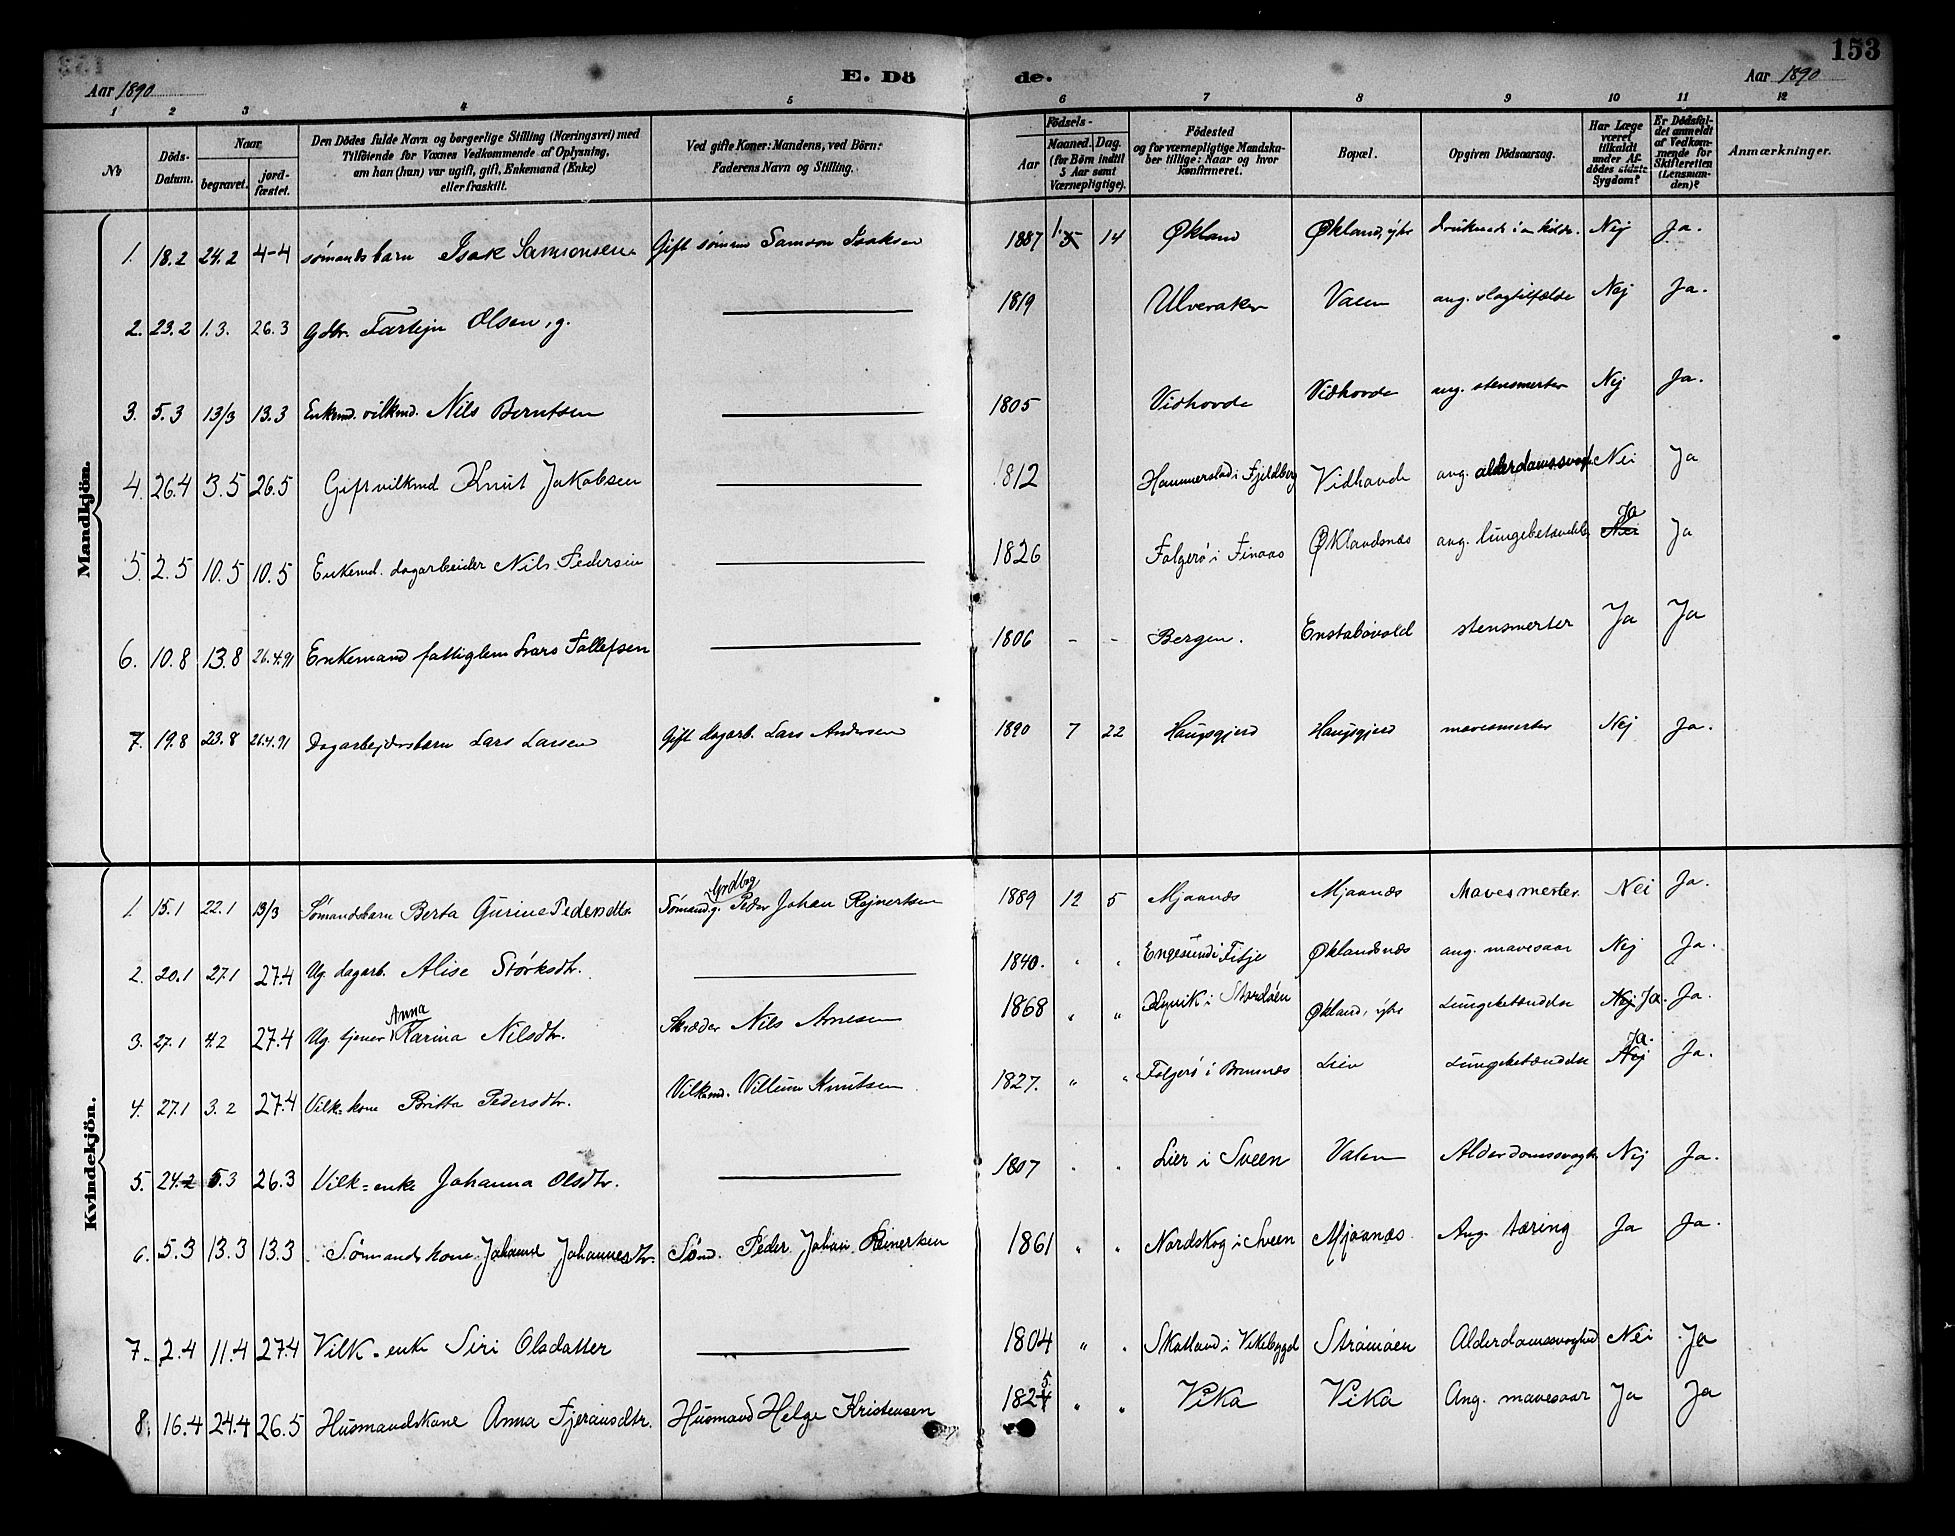 153
Aar 1890
E. Dö de.
Aar 1890
1 2 3 4 5 6 7 8 9 10 11 12
No
Döds-Datum.
Naar
begravet.
jord-fæstet.
Den Dödes fulde Navn og borgerlige Stilling (Næringsvei) med
Tilföiende for Voxnes Vedkommende af Oplysning,
om han (hun) var ugift, gift, Enkemand (Enke)
eller fraskilt.
Ved gifte Koner: Mandens, ved Börn:
Faderens Navn og Stilling.
Födsels-
Aar
Maaned. Dag.
(for Börn indtil
5 Aar samt
Værnepligtige).
Födested
og for værnepligtige Mandska-
ber tillige: Naar og hvor
konfirmeret.
Bopæl.
Opgiven Dödsaarsag.
Har Læge
været
tilkaldt
under Af-
dödes sidste
Sygdom?
Er Dödsfal-
det anmeldt
af Vedkom-
mende for
Skifteretten
(Lensman-
den)?
Anmærkninger.
Mandkjön.
1. 18.2 24.2 4-4 sømandsbarn Isak Samsonsen Gift sømm Samson Isaksen 1887 1. 14 Økland Økland, ytre druknede i en kilde. Nej Ja.
2. 23.2 1.3. 26.3 Gdbr. Olsen, g. 1819 Ulveraker Valen ang. slagtilfælde Nej Ja.
3. 5.3 13/3 13.3 Enkemd. vilkmd. Nils Berntsen 1805 Vidhovde Vidhovde ang. stensmerter Nej Ja.
4. 26.4 3.5 26.5 Gift vilkmd Knut Jakobsen 1812 Hammerslad i Fjeldberg Vidhovde ang. alderdomssvagh. Nei Ja
5. 2.5 10.5 10.5 Enkemd. dagarbeider Nils Pedersen 1826 Folgerø i Finaas Øklandsnæs ang. lungebetændelse Nei Ja Ja
6. 10.8 13.8 26.4.91 Enkemand fattiglem Lars Tollefsen 1806 - - Bergen. Enstabøvold stensmerter Ja Ja
7. 19.8 23.8 26.4.91 Dagarbejdersbarn Lars Larsen Gift dagarb. Lars Andersen 1890 7 22 Haugsgjerd Haugsgjerd mavesmerter Nej Ja.
Kvindekjön.
1. 15.1 22.1 13/3 Sømandsbarn Berta Gurine Pedersdtr Sømand g. Peder Johan Rejnertsen 1889 12 5 Mjaanæs Mjaanæs Mavesmerter Nei Ja.
2. 20.1 27.1 27.4 Ug. dagarb. Alise Størksdtr. 1840. " " Engesund i Fitje Øklandsnæs ang. mavesaar Nej Ja.
3. 27.1 4.2 27.4 Ug. tjener Anna Karina Nilsdtr. Skræder Nils Arnesen 1868 " " i Stordøen Økland, ytre Lungebetændelse Nej Ja. Ja.
4. 27.1 3.2 27.4 Vilk=kone Britta Pedersdtr. Vilkmd. Villum Knutsen 1827. " " Folgerø i Bremnæs Lier Lungebetændelse Nej Ja. Ja.
5. 24.2 5.3 26.3 Vilk=enke Johanna Olsdtr. 1807 " " Lier i Sveen Valen Alderdomssvagh Nej Ja.
6. 5.3 13.3 13.3 Sømandskone Johanne Johannesdtr. Sømd. Peder Johan Reinertsen 1861 " " Nordskog i Sveen Mjaanæs. Ang. tæring Ja Ja.
7. 2.4 11.4 27.4 Vilk=enke Siri Olsdatter 1804 " " Skatland i Vikebygd Strømøen Alderdomssvaghed Nei Ja
8. 16.4 24.4 26.5 Husmandskone Anna Fjeransdtr. Husmand Helge Kristensen 1824 5. " " Vika Vika Ang. mavesaar Ja Ja